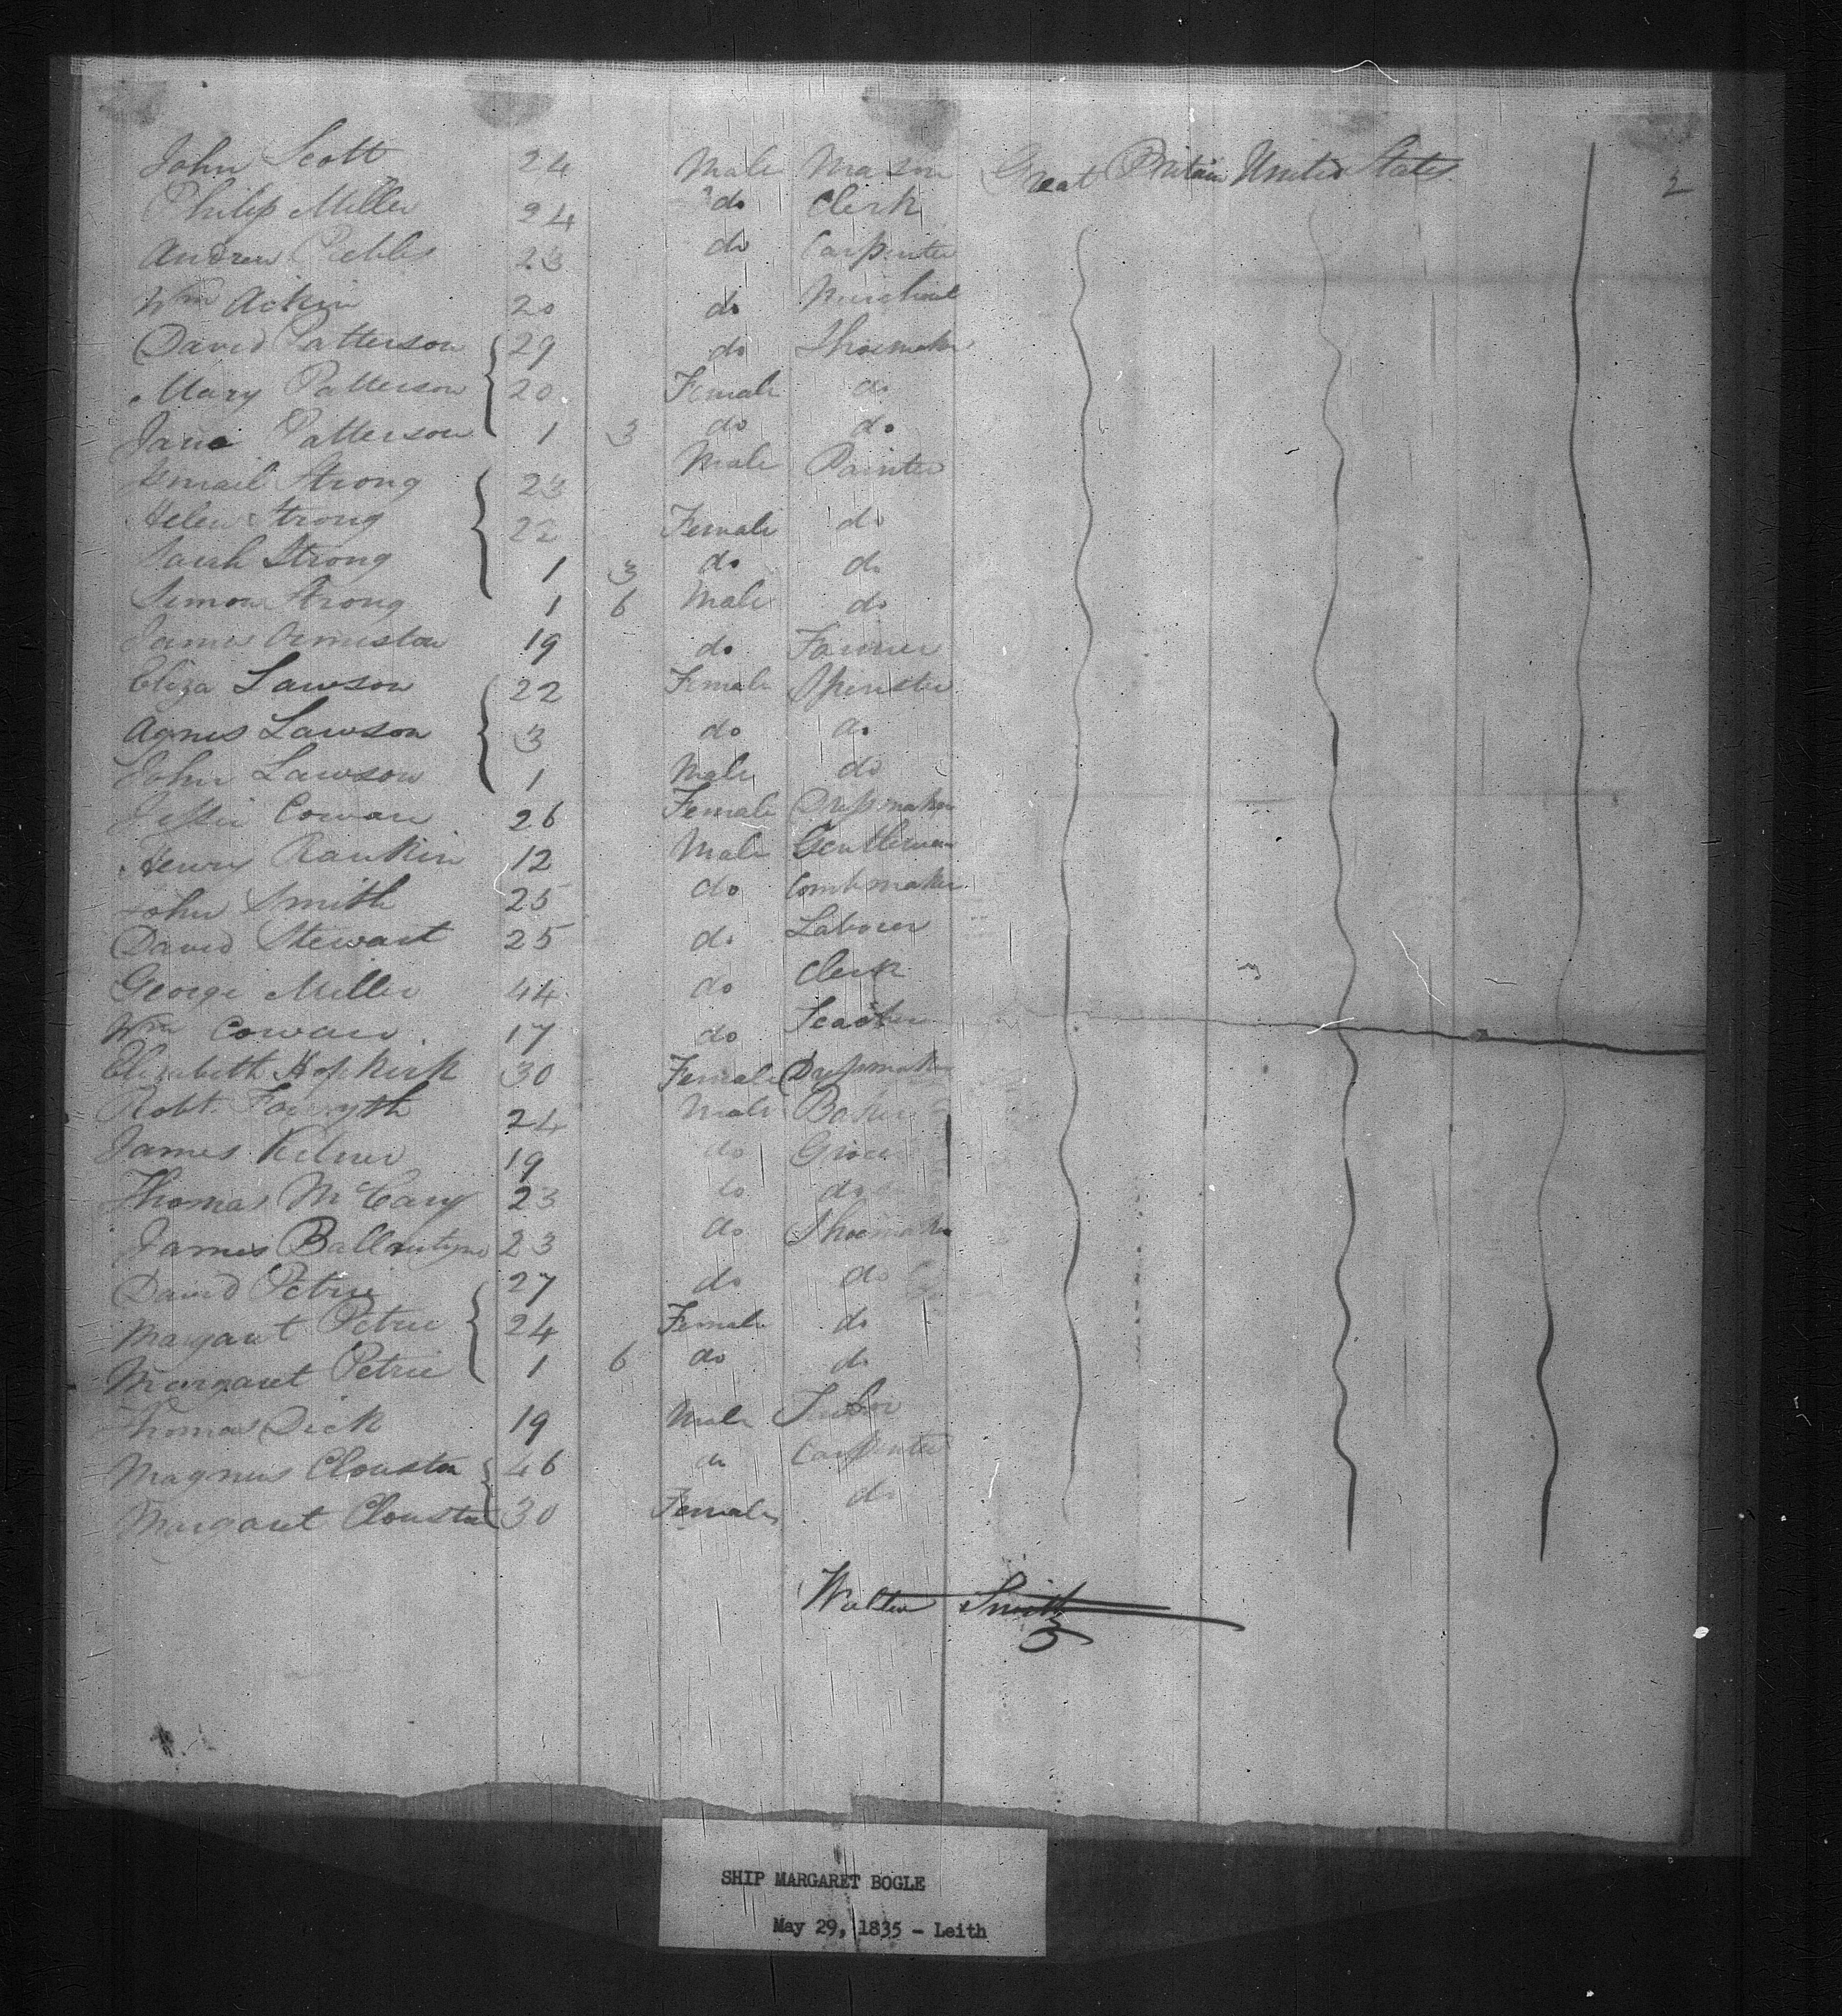 John Scott 24 Male Mason Great Britain United States 2
Philip Miller 24 do Clerk
Andrew Peebles 23 do Carpenter
Wm Acken 20 do Merchant
David Patterson 29 do Shoemaker
Mary Patterson 20 Female do
Jane Patterson 1 3 do do
Strong 23 Male Painter
Helen Strong 22 Female do
Sarah Strong 1 3 do do
Simon Strong 1 6 Male do
James Ormiston 19 do Farmer
Eliza Lawson 22 Female Spinster
Agnes Lawson 3 do do
John Lawson 1 Male do
Jessie Cowan 26 Female Dressmaker
Henry Rankin 12 Male Gentleman
John Smith 25 do Combmaker
David Stewart 25 do Laborer
George Miller 44 do Clerk
Wm Cowan 17 do
Elizabeth Hopkirk 30 Female Dressmaker
Robt Forsyth 24 Male Baker
James Kilner 19 do Grocer
Thomas McCary 23 do do
James Ballantyne 23 do Shoemaker
David Petrie 27 do do
Margaret Petrie 24 Female do
Margaret Petrie 1 6 do do
Thomas Dick 19 Male
Magnus Clouston 46 do Carpenter
Margaret Clouston 30 Female do
Walter Smith
SHIP MARGARET BOGLE
May 29, 1835 - Leith